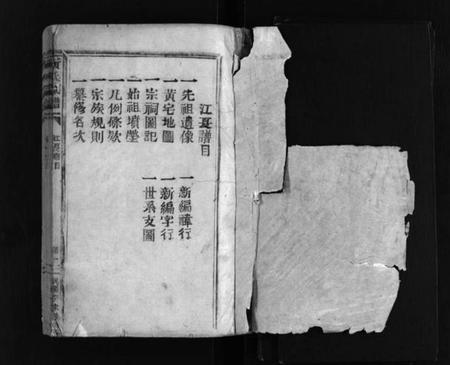 江夏譜目
一先祖遺像
一黃宅地圖
一宗祠圖記
一始祖墳塋
一凡例條欵
一宗族規則
一纂脩名次
一新編諱行
一新編字行
一世系支圖
江夏譜目